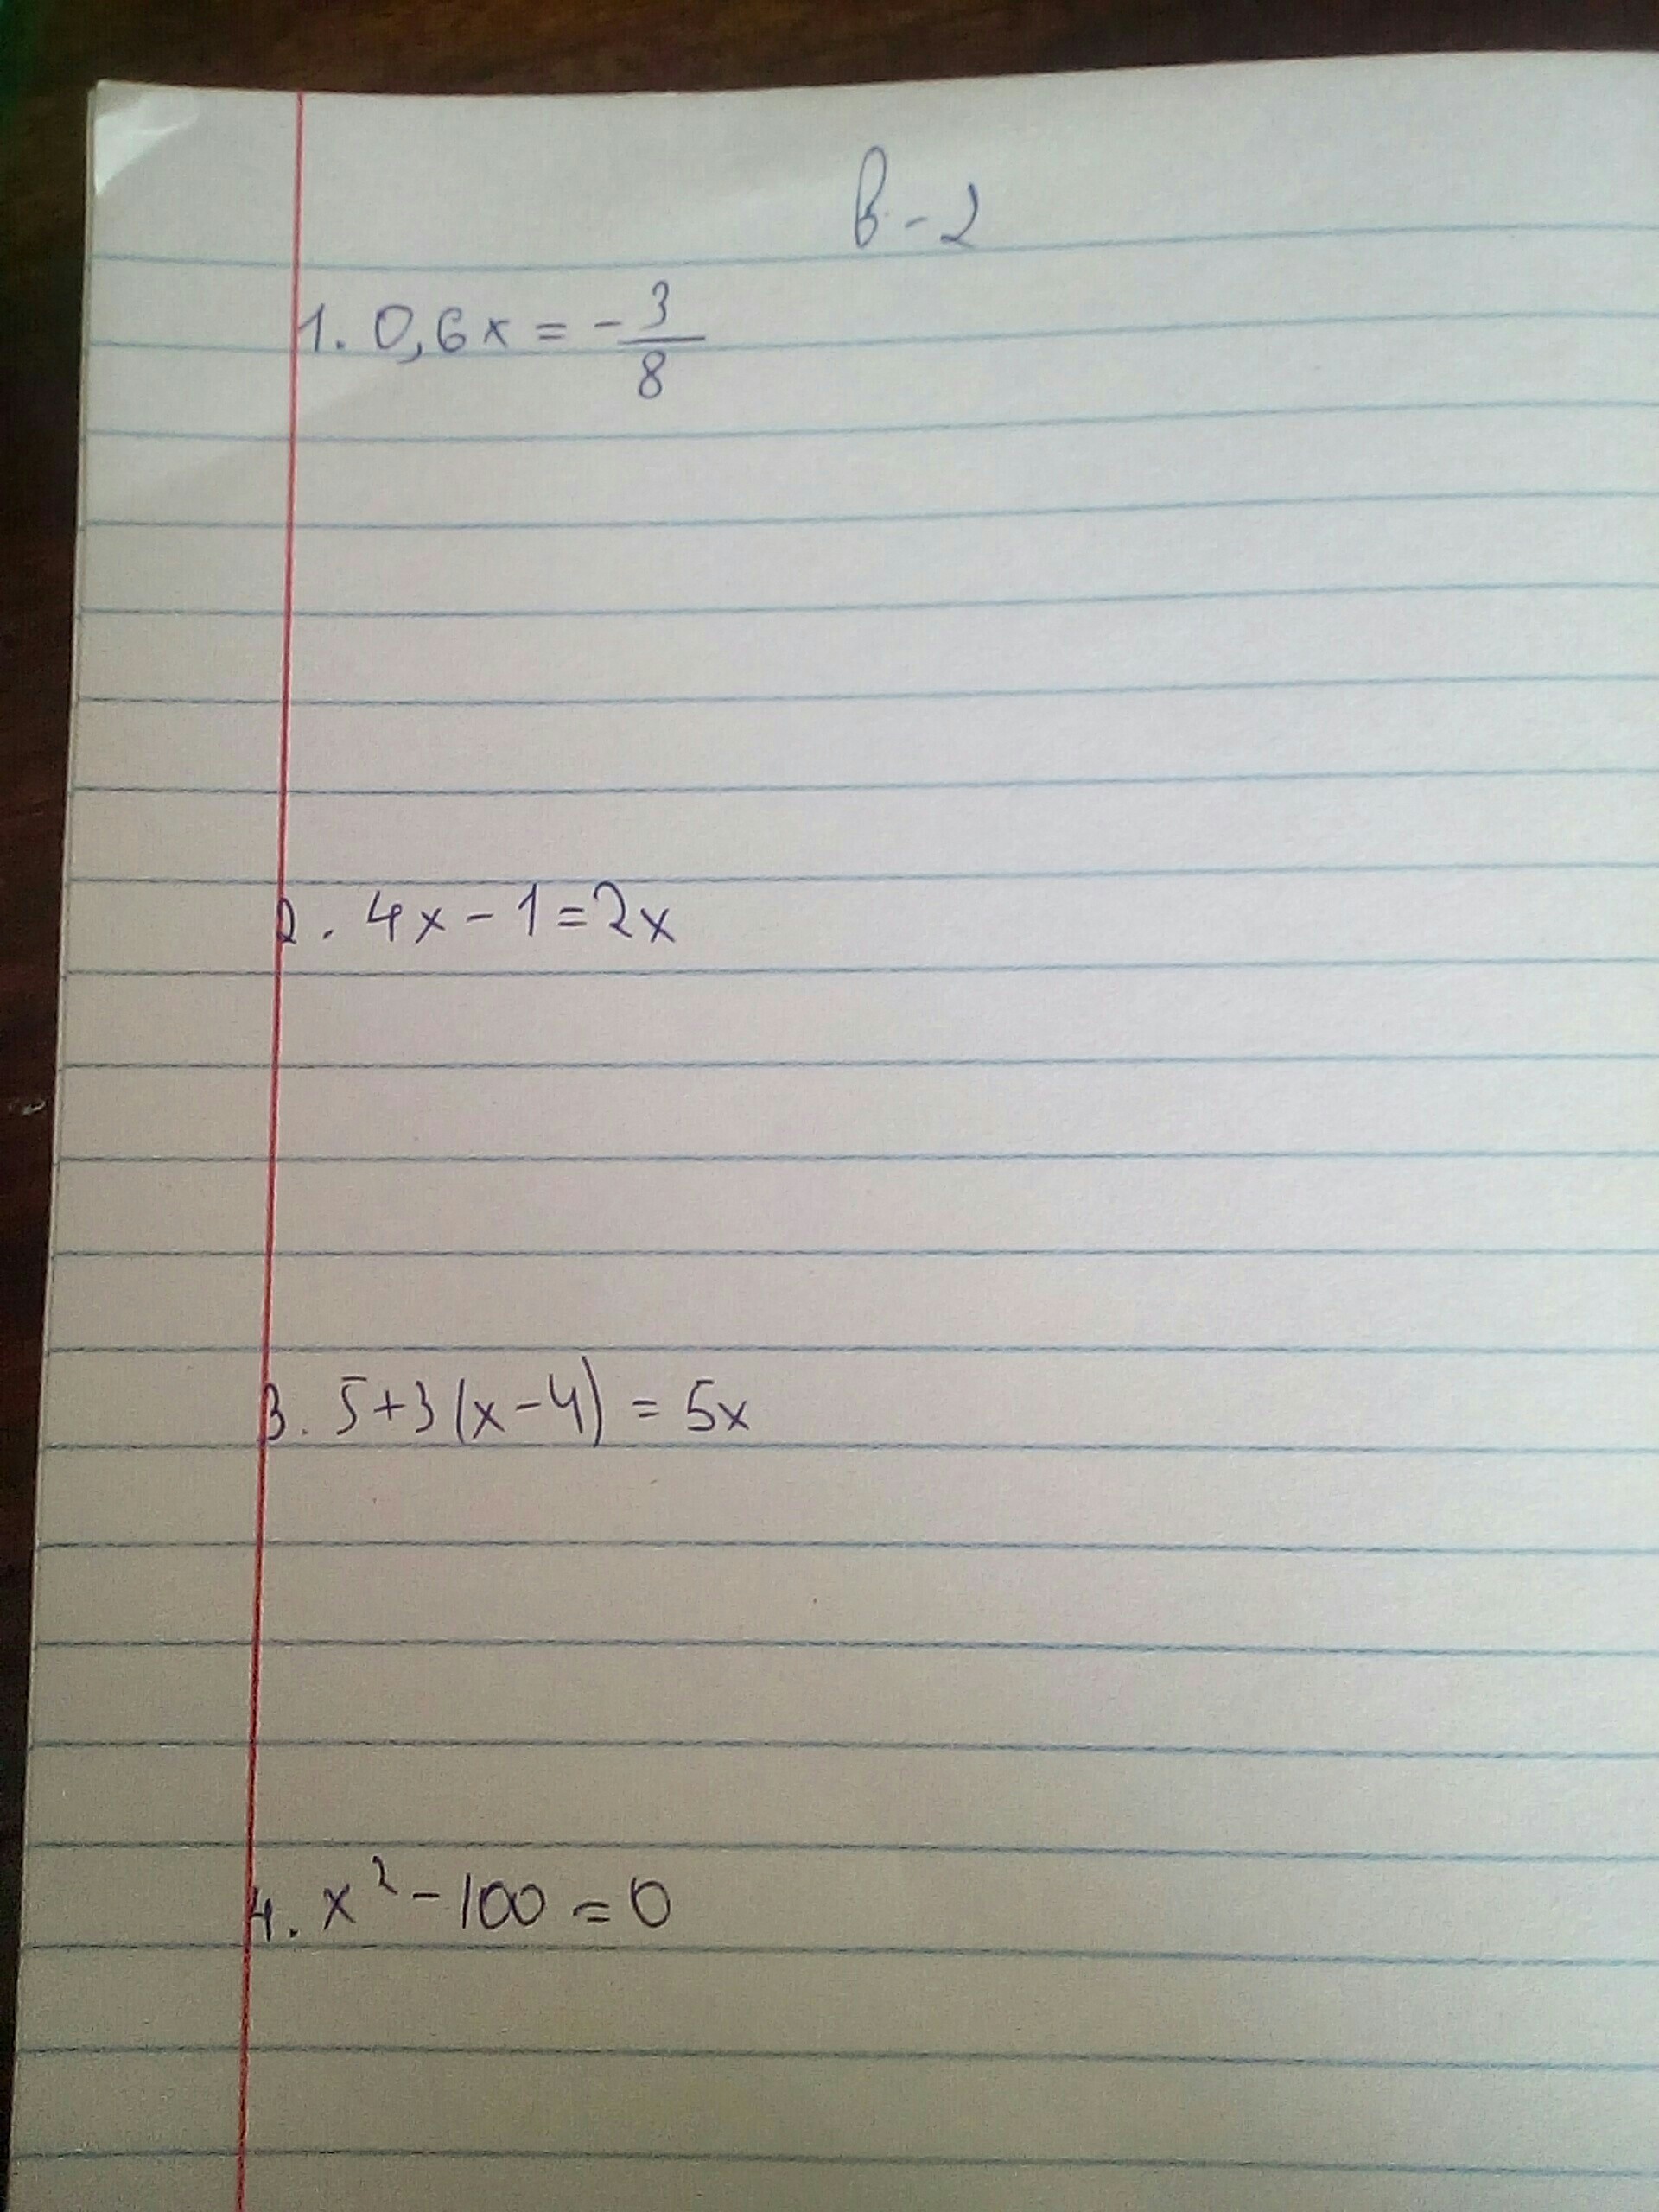 в-2
1. 0,6x = -3/8
2. 4x-1=2x
3. 5+3(x-4) = 5x
4. x²-100=0